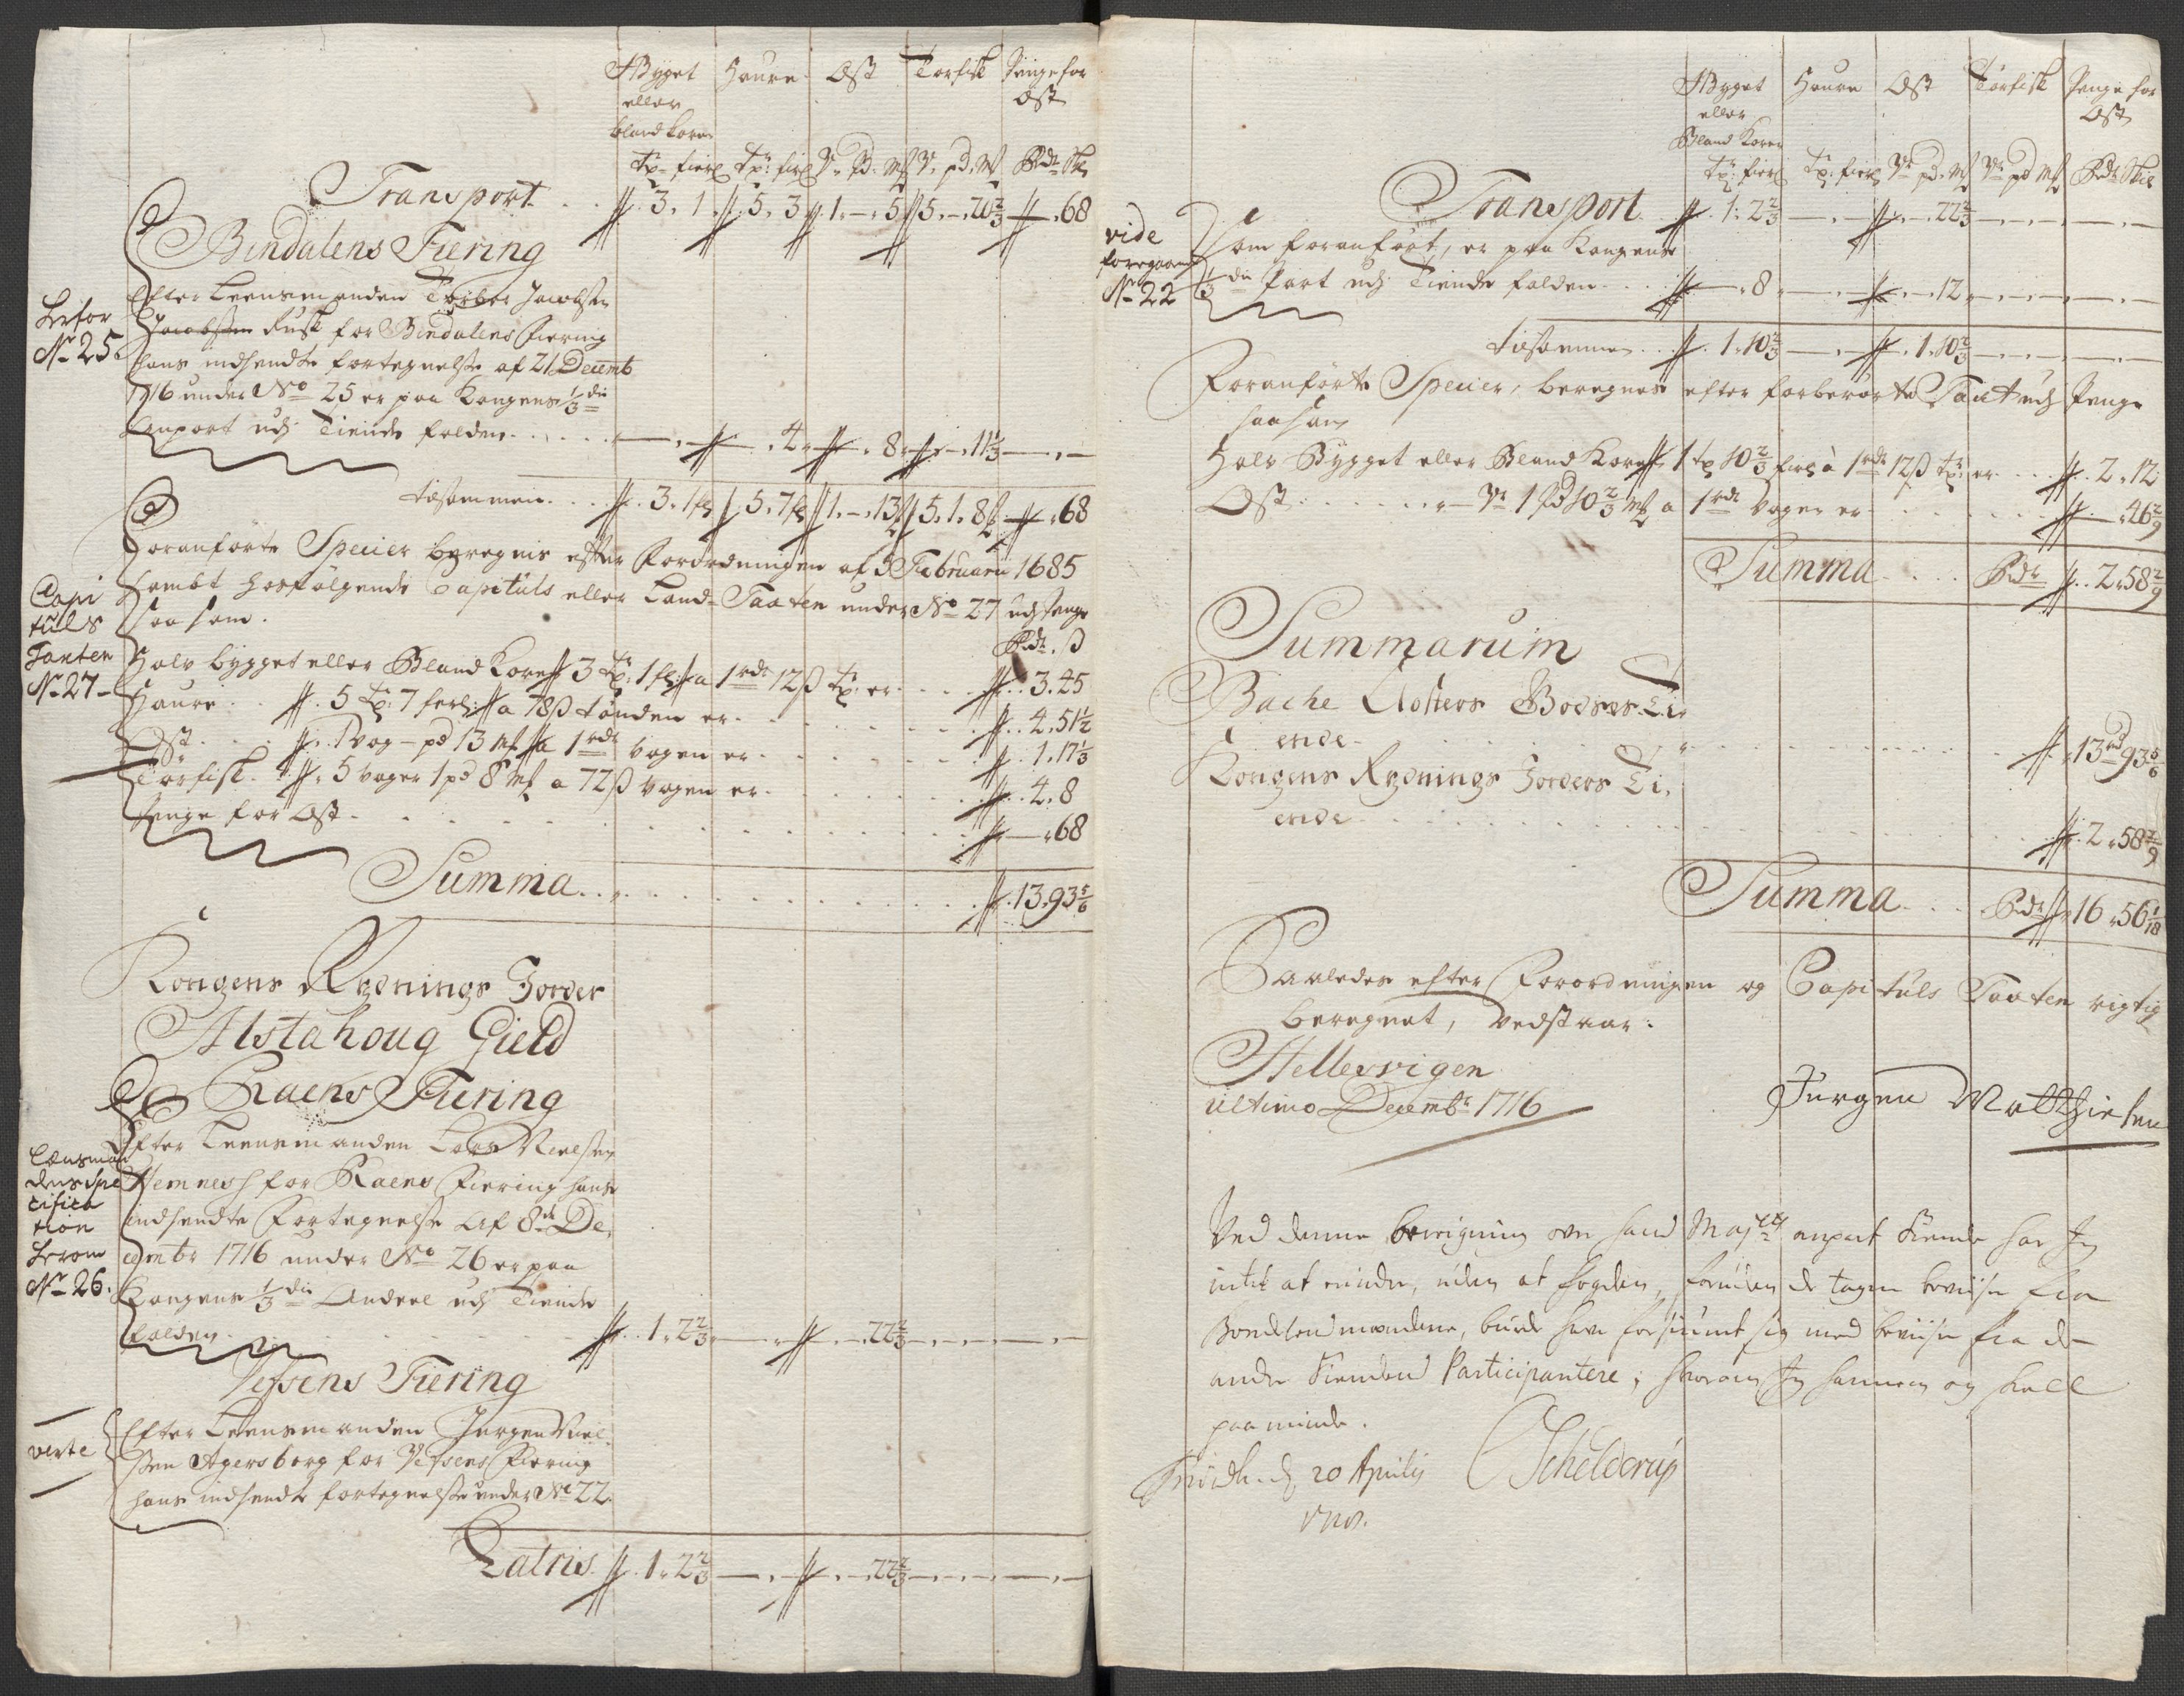 Bÿget Haure Ost Torfisk Penge for
eller Ost
bland korn
tr: fierd tr: fird Vr. Pd. Mk Vr. pd. Mk Rdr Sk
Transport 3. 1 5. 3 1. - 5 5. - 20 2/3 - 68
Bindalens Fiering
Efter Leensmanden Torber Jacobsen
Jacobsen Rusk for Bindalens Fiering
hans indsendte fortegnelse af 21 Decemb
1716 under No 25 er paa Kongens 1/3 die
Anport udj Tiende falden - - 4 - 8 - - 11 1/3 - -
Herfor
No 25
tilsammen 3. 1 5. 7 1. - 13 5. 1. 8 - 68
Foranførte Specier beregnis efter Forordningen af 5 Februarii 1685
sambt hosfølgende Capituls eller Land-Taxten under No 27 udj Penge
saasom.
Rdr. ß
Capi
tuls
Taxten
No 27
Halv bygget eller Bland Korn 3 tr: 1 a 1 rdr 12 ß tr: er 3. 45
Haure 5 tr: 7 ferd: a 78 ß tønden er 4. 51 1/2
Ost 1 vog - pd 13 mk a 1 rdr vogen er 1. 17 1/3
Tørfisk 5 voger 1 pd 8 mk a 72 ß vogen er 4. 8
Penge for Ost - 68
Summa 13. 93 5/6
Kongens Rydnings Jorder
Alstahoug Gield
Raens Fiering
Efter Leensmanden Lars Nielsen
Hemnes for Raens Fiering hans
indsendte Fortegnelse af 8de De
cembr 1716 under No 26 er paa
Kongens 1/3 die Andeel udj Tiende
falden 1. 2 2/3 - - - 22 2/3 - - - - -
Lensman
dens spe
cifica
tion
herom
No 26.
Vefsens Fiering
Efter Leensmanden Jørgen Niel
sen Agersborg for Vefsens Fiering
hans indsendte fortegnelse under No 22
verte
Latris 1. 2 2/3 - - - 22 2/3 - - - - -
Bÿget Haure Ost Tørfisk Penge for
eller Ost
Bland Korn
tr: fierd tr: fierd Vr pd. Mk Vr pd Mk Rdr Skl
Transport 1. 2 2/3 - - - 22 2/3 - - - - -
vide
foregaaende
No 22
som foranført, er paa Kongens
1/3 die Part udj Tiende falden - 8 - - - 12 - - - - -
tilsammen 1. 10 2/3 - - 1. 10 2/3 - - - - -
Foranførte Specier, beregnes efter forberørte Taxt udj Penge
saasom
Halv Bygget eller Bland Korn 1 tr 10 2/3 fierd à 1 rdr 12 ß tr: er 2. 12
Ost - Vr 1 Pd 10 2/3 mk a 1 rdr vogen er - 46 2/9
Summa Rdr 2. 58 2/9
Summarum
Bache Closters Godses Ti
ende 13 rd 93 5/6
Kongens Rydnings Jorders Ti
ende 2. 58 2/9
Summa Rdr 16. 56 1/18
Saaledes efter Forordningen og Capituls Taxten rigtig
beregnet, vedstaar.
Hellesvigen
ultimo Decembr 1716
Jørgen Matthiesen
Ved denne beregning over hans Majts anpart Tiende har Jeg
intet at minde, uden at fogden, foruden de tagne beviser fra
Bondelensmændene, burde have forsiunt sig med beviiser fra de
andre Tiendens Participantere; hvorom Jeg hannem og skall
paaminde.
20 Aprilis
Schelderup